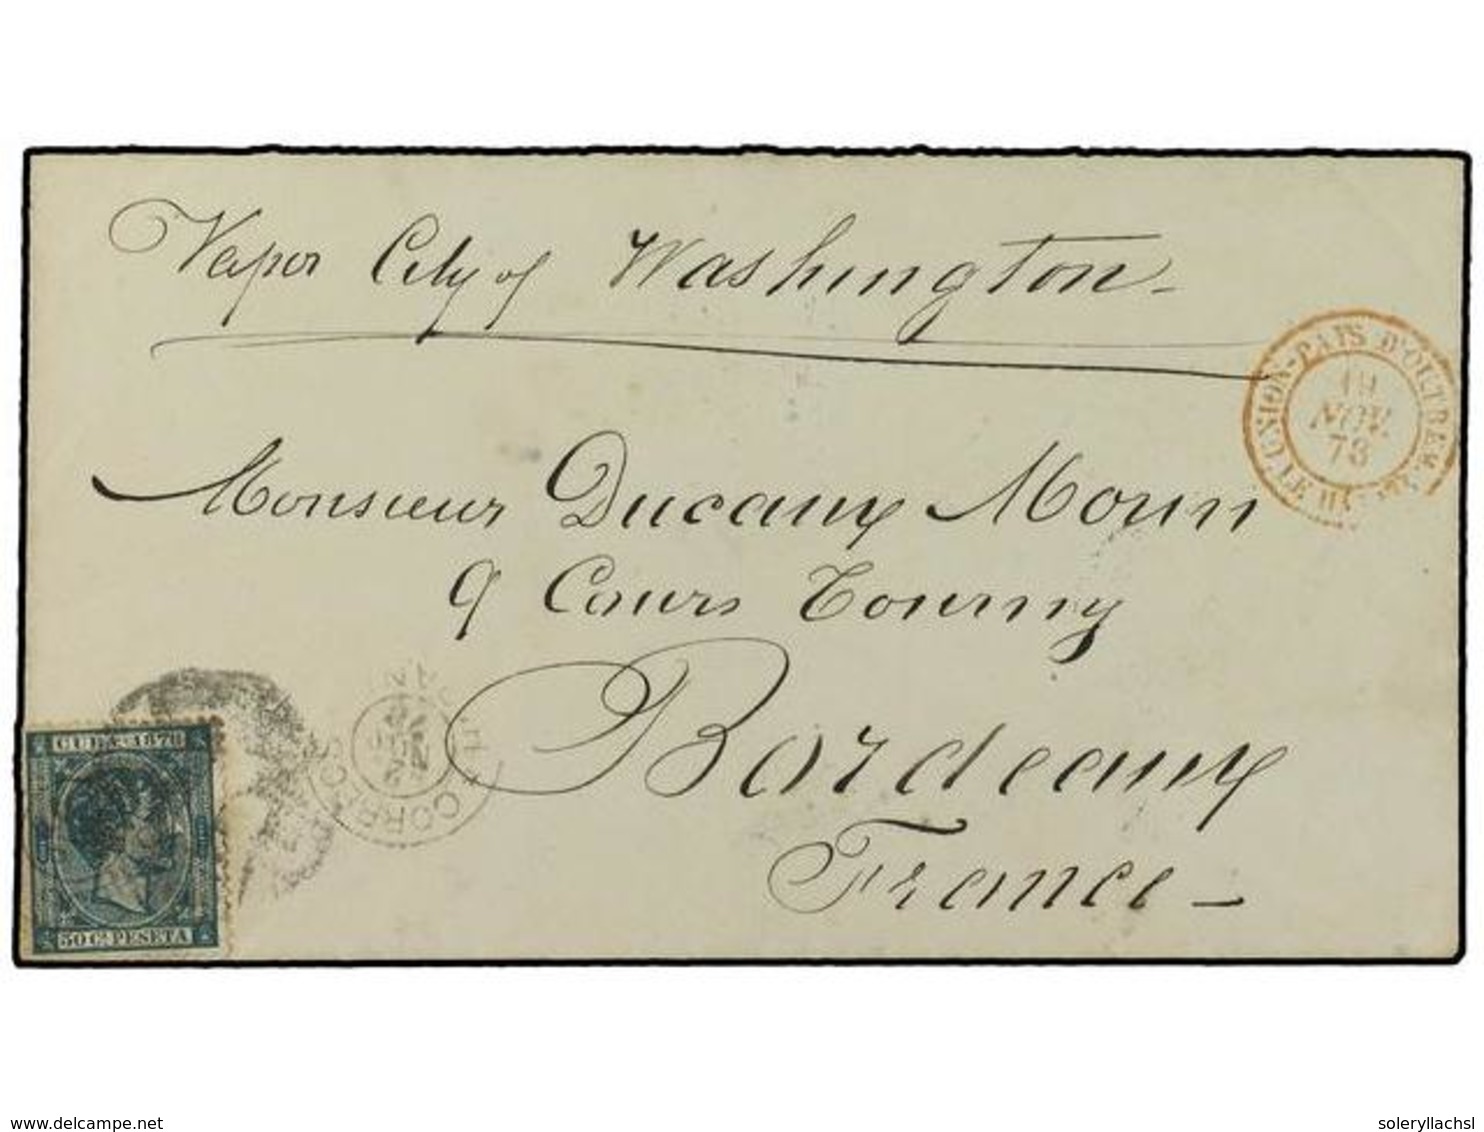 Vapor City of Washington
UNION-PAYS D'OUTREM.
19
NOV.
78
LE HAVRE
Monsieur Ducaux Morin
9 Cours Tourny
Bordeaux
France
CORREOS
CUBA 1878
50 Cs PESETA
www.delcampe.net
soleryllachsl